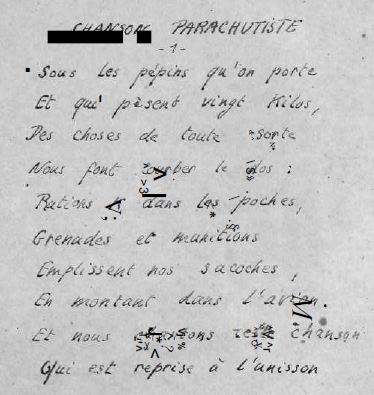 CHANSON PARACHUTISTE
-1-
Sous les pépins qu'on porte
Et qui pèsent vingt Kilos,
Des choses de toute sorte
Nous font courber le dos :
Rations dans les poches,
Grenades et munitions
Emplissent nos sacoches,
En montant dans l'avion
Et nous chanson
Qui est reprise à l'unisson